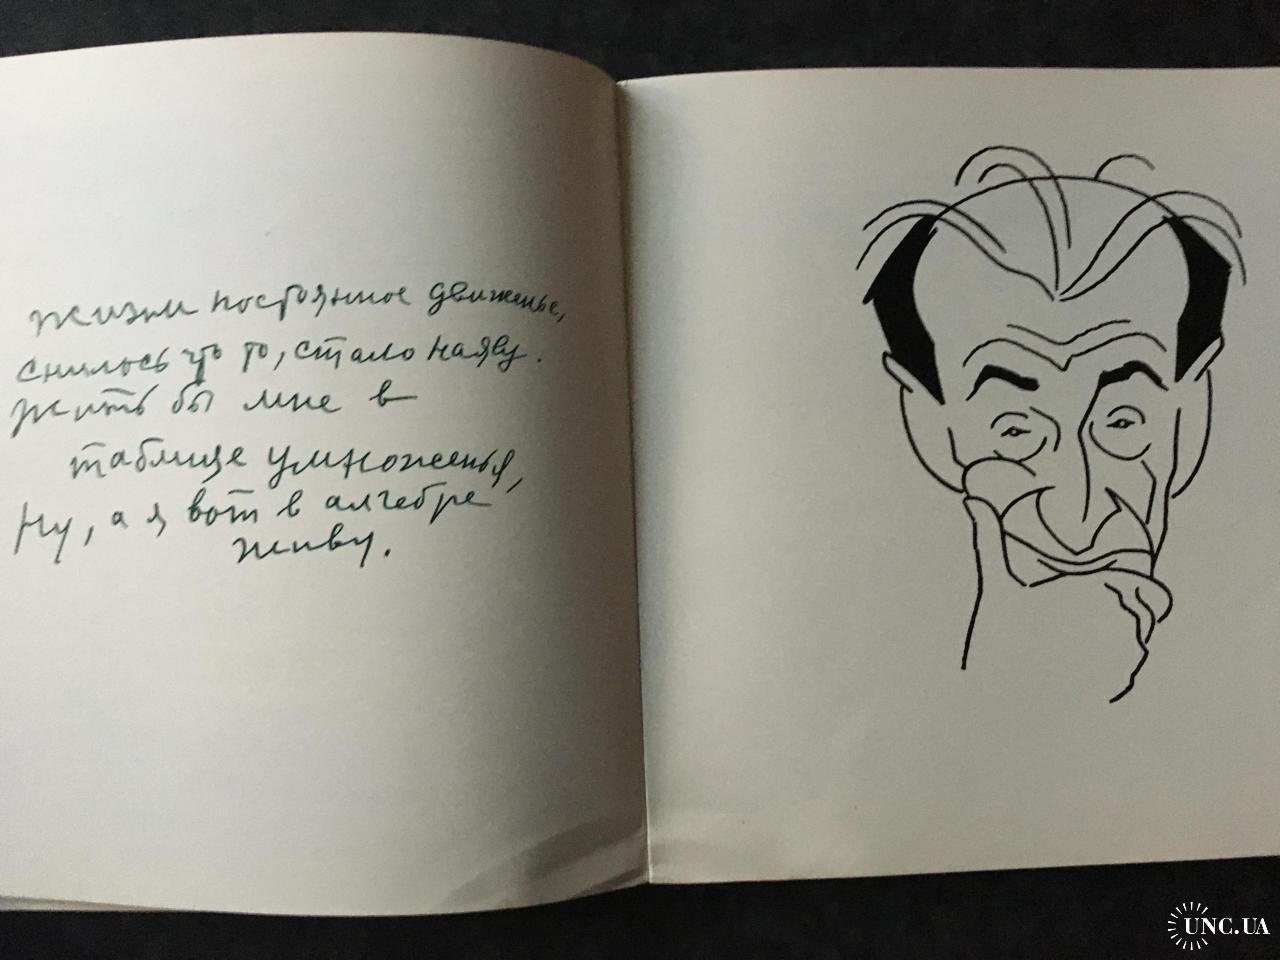 Жизни постоянное движенье,
снилось что то, стало наяву.
Жить бы мне в
таблице умноженья,
Ну, а я вот в алгебре
живу.
UNC.UA